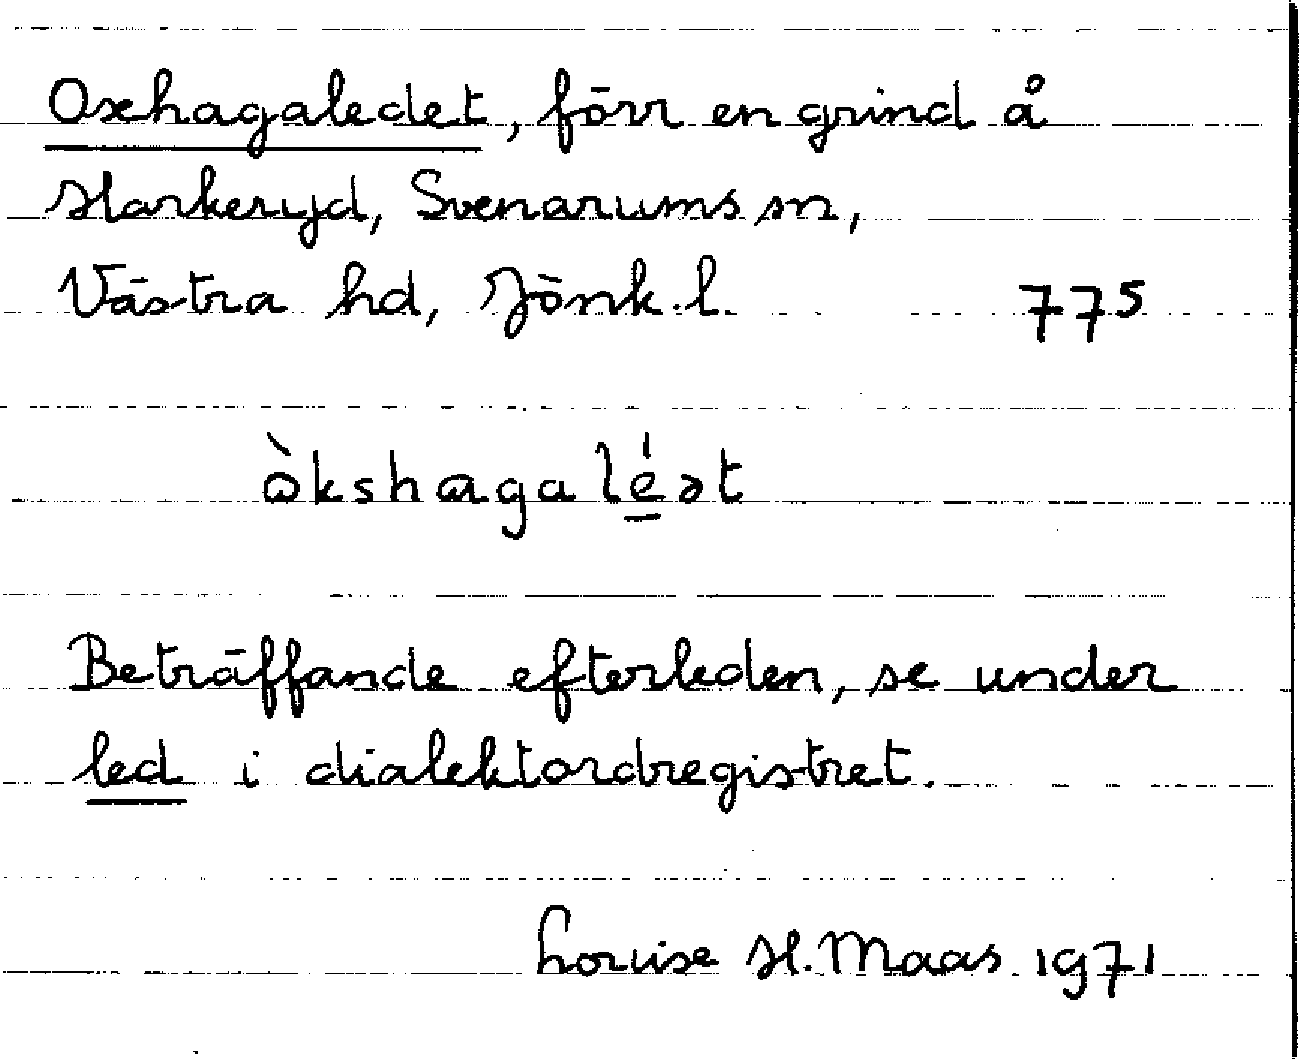 Oxhagaledet, förr en grind å
Harkeryd, Svenarums sn,
Västra hd, Jönk. l. 775
òkshaga lé̱ət
Beträffande efterleden, se under
led i dialektordregistret.
Louise H. Maas 1971